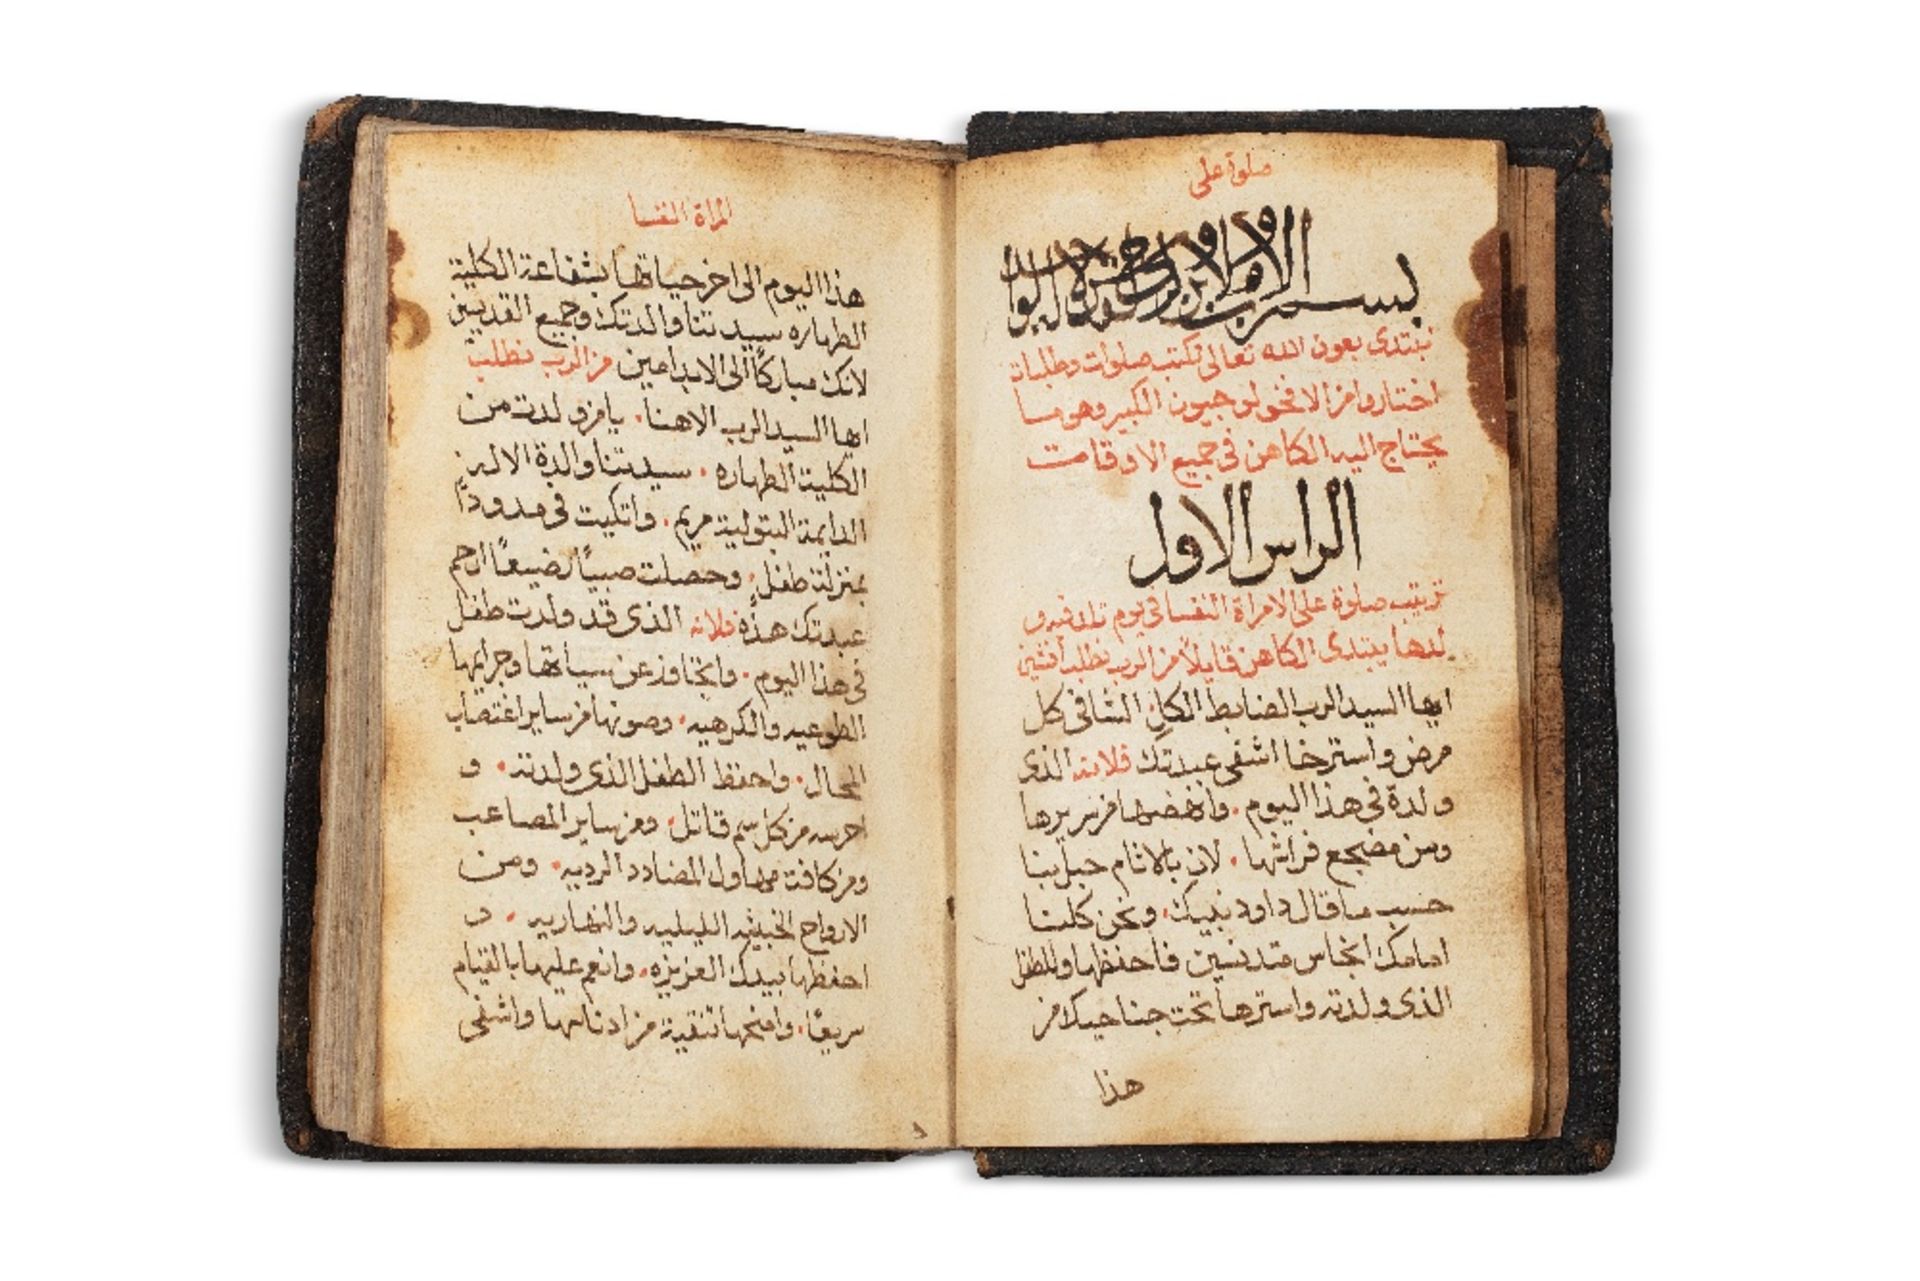 صلوة على
بسم الاب والابن والروح القدس الاله الواحد
نبتدى بعون الله تعالى نكتب صلوات وطلبات
اختاروا من الافخولوجيون الكبير وهو ما
يحتاج اليه الكاهن فى جميع الاوقات
الراس الاول
ترتيب صلوة على الامراة النفسا فى يوم تلد فيه و
لدها يبتدى الكاهن قايلاً من الرب نطلب افشين
ايها السيد الرب الضابط الكل الشافى كل
مرض واسترخا اشفى عبدتك فلانه الذى
ولدة فى هذا اليوم. وانهضها من سريرها
ومن مضجع فراشها. لان بالاثام حبل بنا
حسب ما قال داود نبيك. ونحن كلنا
امامك انجاس متدنسين فاحفظها والطفل
الذى ولدته واسترها تحت جناحيك من
هذا
المراة النفسا
هذا اليوم الى اخر حياتها بشفاعة الكلية
الطهاره سيدتنا والدتك وجميع القديسين
لانك مباركاً الى الابد امين من الرب نطلب
ايها السيد الرب الاهنا. يا من ولدت من
الكلية الطهاره. سيدتنا والدة الاله
الدايمة البتولية مريم. واتكيت فى مدود
بمنزلة طفل. وحصلت صبياً رضيعاً ارحم
عبدتك هذه فلانه الذى قد ولدت طفل
فى هذا اليوم. وتجاوز عن سياتها وجرايمها
الطوعيه والكرهيه. وصونها من ساير اغتصاب
المحال. واحفظ الطفل الذى ولدته. و
احرسه من كل سم قاتل. ومن ساير المصاعب
ومن كافت مهاول المضادد الرديه. ومن
الارواح الخبيثه الليليه والنهاريه. و
احفظها بيدك العزيزه. وانعم عليها بالقيام
سريعًا. وامنحها تنقية من ادناسها واشفى